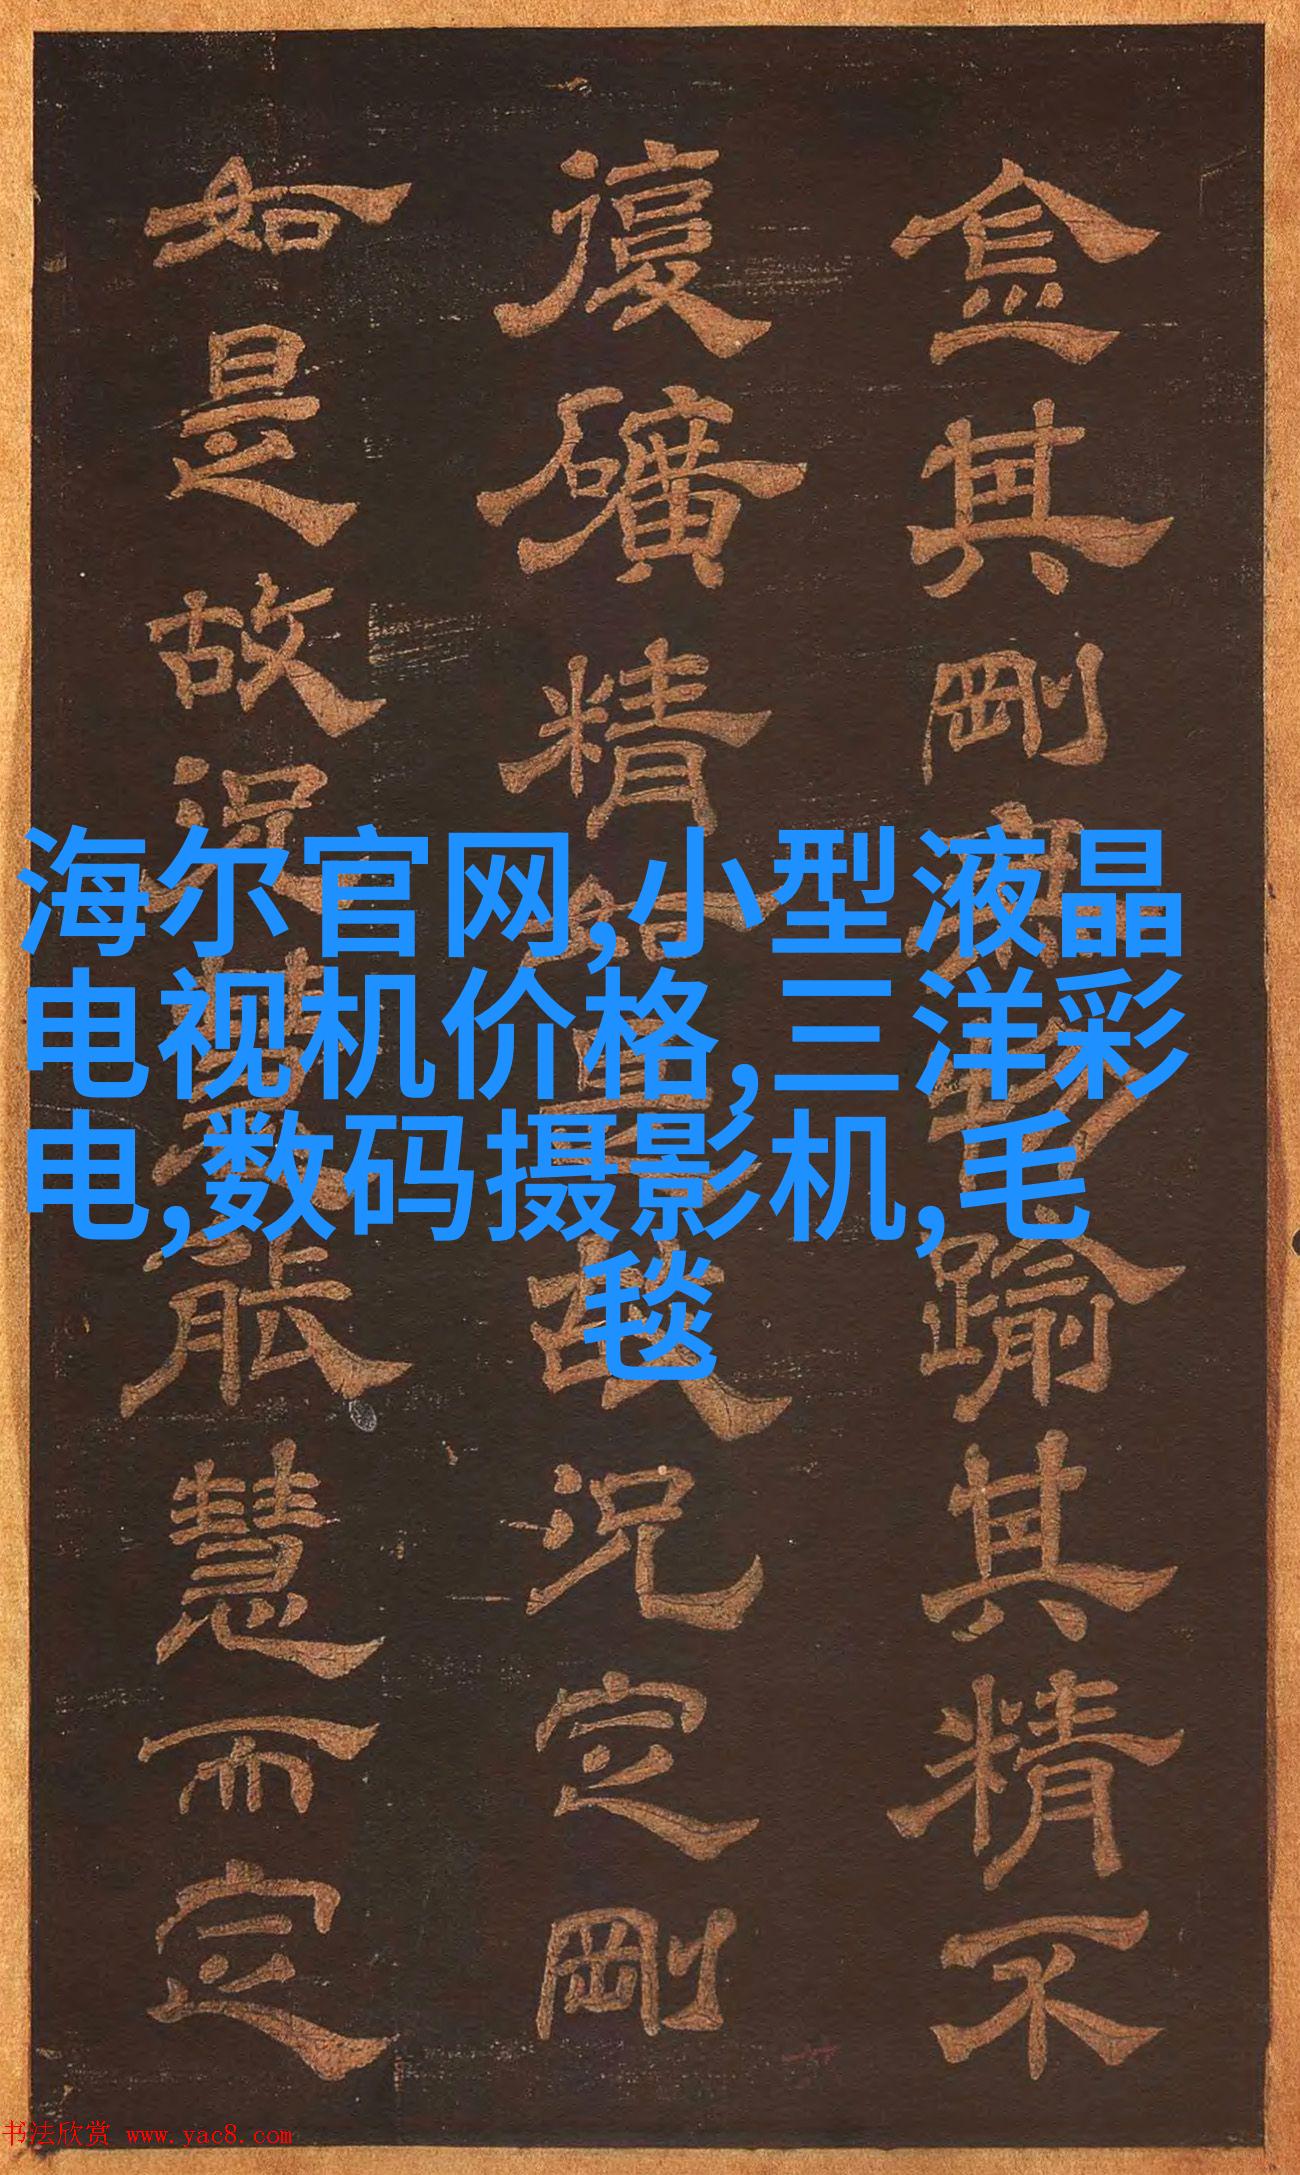 其剛踰其精不
復礦精故況定剛
如是故況能慧而定
海尔官网,小型液晶
电视机价格,三洋彩
电,数码摄影机,毛
毯
书法欣赏 www.yac8.com